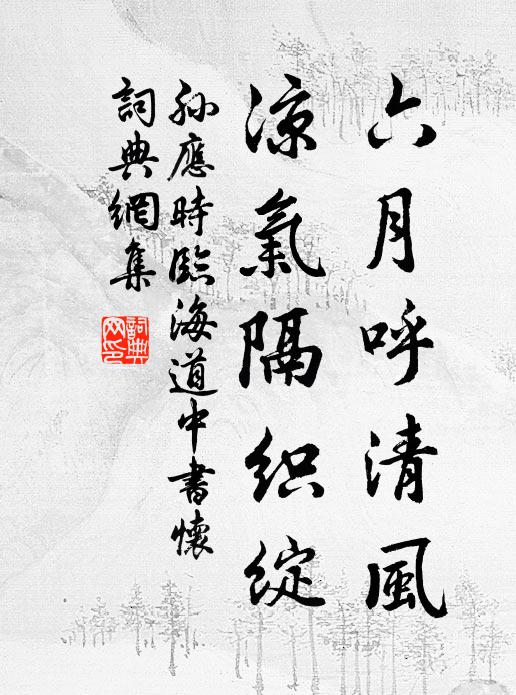 六月呼清風
涼氣隔织綻
孫應時臨海道中書懷
詞典網集
詞典
网印